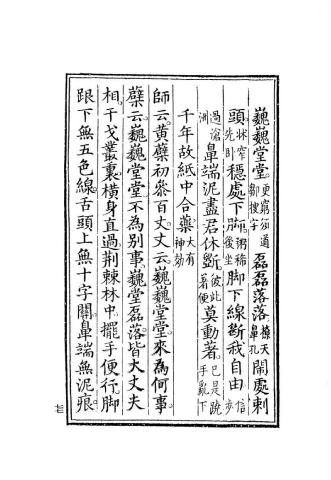 巍巍堂堂更窮須道鄒搜子磊磊落落撩天鼻孔鬧處刺
頭牀窄先卧穩處下脚粥稀後坐脚下線斷我自由信亦
過滄洲鼻端泥盡君休斵彼此著便莫動著已是跣手亂下
千年故紙中合藥大有神効
師云。黃檗初參百丈。丈云。巍巍堂堂。來為何事。
檗云。巍巍堂堂。不為別事。巍堂磊落。皆大丈夫
相。干戈叢裏。橫身直過。荊棘林中。擺手便行。脚
跟下無五色線。舌頭上無十字關。鼻端無泥痕。